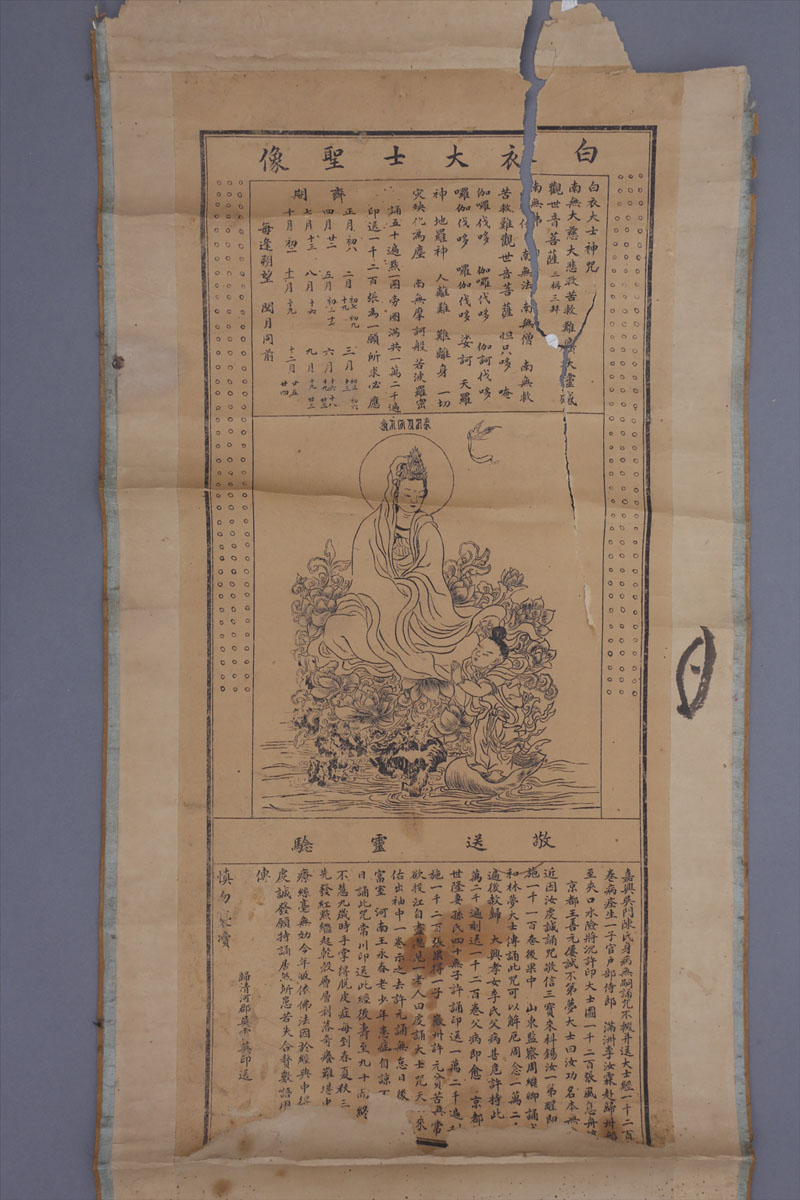 白衣大士聖像
白衣大士神咒
南無大慈大悲救苦救難廣大靈感
觀世音菩薩 三稱三拜
南無佛 南無法 南無僧 南無救
苦救難觀世音菩薩 怛只哆 唵
伽囉伐哆 伽囉伐哆 伽訶伐哆
囉伽伐哆 囉伽伐哆 娑訶 天羅
神 地羅神 人離難 難離身 一切
災殃化為塵 南無摩訶般若波羅蜜
誦五十遍㸃一圈帝圈滿共一萬二千遍
印送一千二百張為一願所求必應
齊期
正月初六 二月初七初九十九 三月初三初六十三
四月廿二 五月初三十七 六月十六十八十九廿三
七月十三 八月十六 九月十九廿三
十月初二 十一月十九 十二月廿四廿五
每逢朔望 閏月同前
敬送靈驗
嘉興吳門陳氏身病無嗣誦咒不輟并送大士經一千二百
卷病痊生一子官戶部侍郎 滿洲李汝霖赴歸州
至夾口水險將沉許印大士圖一千二百張風息舟
京都王善元屢試不第夢大士曰汝功名本無
近因汝虔誠誦咒敬信三寶來科錫汝一第醒即
施一千一百卷後果中 山東監察周繼卿誦
和林夢大士傳誦此咒可以解厄周念一萬二
遍後赦歸 大興孝女李氏父病甚危許持此
萬二千遍刻送一千二百卷父病即愈 京都
世隆妻孫氏四十無子許誦印送一萬二千遍
施一千二百張果得一子 徽州許元貧苦無常
欲投江自盡遇見一老人曰虔誦大士咒天 來
佑出袖中一卷示之去許元誦無忘日後
富室 河南王永春老少年患症自諒
日誦此咒常川印送此經後壽至九十而終
不慧九歲時手掌得脫皮症每到春夏秋三
先發紅㸃繼起乾殼層層剝落奇癢難堪中
療絲毫無効今年皈依佛法因於經典中得
虔誠發願持誦居然所患若失合贅數語用
傳
慎勿褻瀆
歸清河郡吳雪英印送